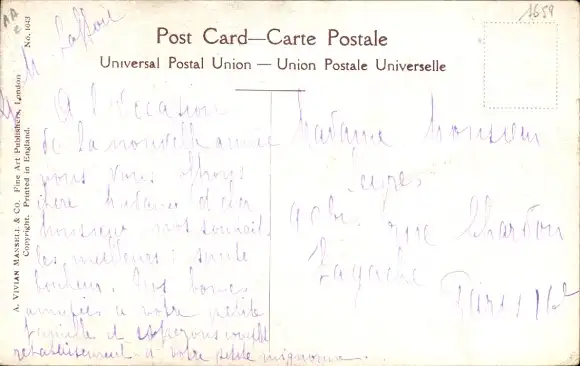 1659
Post Card—Carte Postale
Universal Postal Union — Union Postale Universelle
A. Vivian Mansell & Co. Fine Art Publishers, London No. 1043
Copyright. Printed in England.
A l'occasion
de la nouvelle année
nous vous offrons
chère Madame et cher
Monsieur nos souhaits
les meilleurs : santé
bonheur. Nos bonnes
amitiés à votre petite
famille et espérons
rétablissement à votre petite mignonne.
Madame Monsieur
rue Chardon
Lagache
Paris 16e